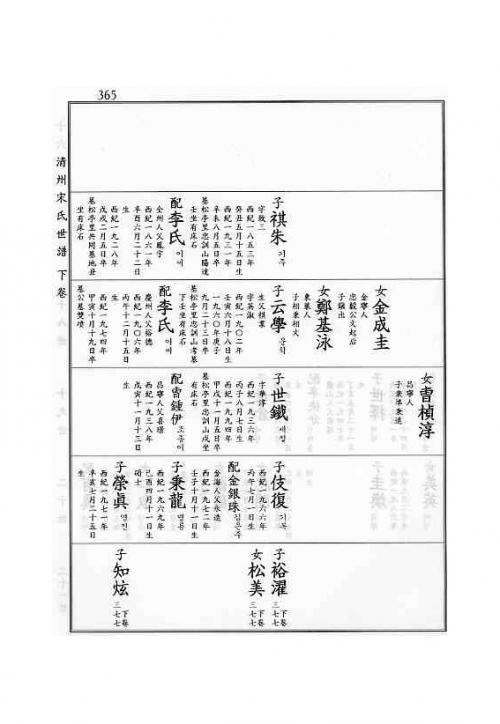 365
清州宋氏世譜 下卷
子祺朱 기주
字敬三
西紀一八五三年
癸丑五月十五日生
西紀一九三一年
辛未八月五日卒
墓松亭里忠訓山陽達
壬坐有床石
配李氏 이씨
全州人父鳳宇
西紀一八六一年
辛酉六月二十二日
生
西紀一九二八年
戊戌二月五日卒
墓松亭里共同墓地丑
坐有床石
女金成圭
金寧人
忠毅公文起后
子鎭出
女鄭基泳
東萊人
子相秉相文
子云學 운학
生父祺業
字英淑
西紀一九〇二年
壬寅六月十八日生
西紀一九六〇年庚子
九月二十三日卒
墓松亭里忠訓山考墓
下壬坐有床石
配李氏 이씨
慶州人父裕德
西紀一九〇六年
丙午十二月十五日
生
西紀一九七四年
甲寅十月十九日卒
墓公墓雙墳
女曺楨淳
昌寧人
子秉準秉遠
子世鐵 세철
字華淳
西紀一九三六年
丙子八月七日生
西紀一九九四年
甲戌十月五日卒
墓松亭里忠訓山戌坐
有床石
配曺鍾伊 조종이
昌寧人父喜璟
西紀一九三八年
戊寅十一月十三日
生
子伎復 기복
西紀一九六六年
丙午七月一日生
配金銀珠 김은주
金海人父永造
西紀一九七二年
壬子十月一日生
子秉龍 병룡
西紀一九六九年
己酉四月十一日生
碩士
子榮眞 영진
西紀一九七一年
辛亥七月二十五日
生
子裕濯 下卷 三七七
女松美 下卷 三七七
子知炫 下卷 三七七